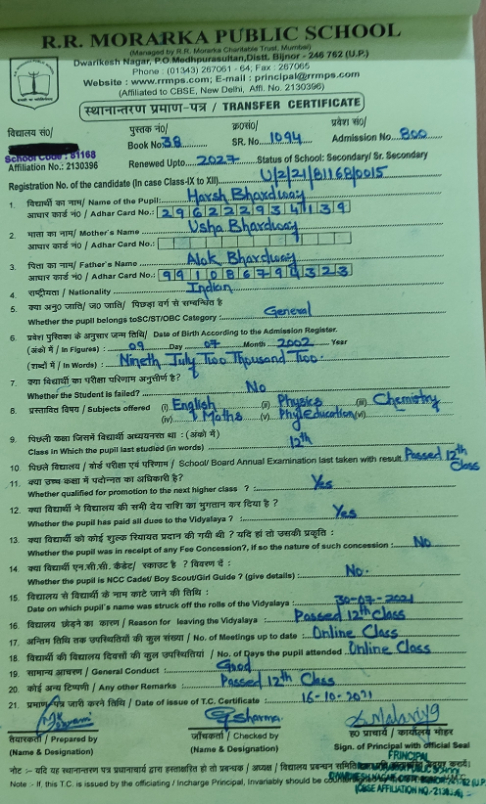 R.R. MORARKA PUBLIC SCHOOL
(Managed by R.R. Morarka Charitable Trust, Mumbai)
Dwarikesh Nagar, P.O.Medhpurasultan,Distt. Bijnor - 246 762 (U.P.)
Phone : (01343) 267061 - 64; Fax : 267065
Website : www.rrmps.com; E-mail : principal@rrmps.com
(Affiliated to CBSE, New Delhi, Affi. No. 2130396)
स्थानान्तरण प्रमाण-पत्र / TRANSFER CERTIFICATE
विद्यालय सं0/ पुस्तक नं0/ क्र0सं0/ प्रवेश सं0/
School Code : 81168 Book No 38 SR. No. 1094 Admission No. 800
Affiliation No.: 2130396 Renewed Upto 2027 Status of School: Secondary/ Sr. Secondary
Registration No. of the candidate (In case Class-IX to XII) U/2/21/81168/0015
1. विद्यार्थी का नाम/ Name of the Pupil: Harsh Bhardwaj
आधार कार्ड नं0 / Adhar Card No.: 296222934139
2. माता का नाम/ Mother's Name Usha Bhardwaj
आधार कार्ड नं0 / Adhar Card No.:
3. पिता का नाम/ Father's Name Alok Bhardwaj
आधार कार्ड नं0 / Adhar Card No.: 991086794323
4. राष्ट्रीयता / Nationality Indian
5. क्या अनु0 जाति/ ज0 जाति/ पिछड़ा वर्ग से सम्बन्धित है
Whether the pupil belongs toSC/ST/OBC Category : General
6. प्रवेश पुस्तिका के अनुसार जन्म तिथि/ Date of Birth According to the Admission Register.
(अंको में / In Figures) : 09 Day 07 Month 2002 Year
(शब्दों में / In Words) : Nineth July Two Thousand Two.
7. क्या विद्यार्थी का परीक्षा परिणाम अनुत्तीर्ण है?
Whether the Student is failed? No
8. प्रस्तावित विषय / Subjects offered (i) English (ii) Physics (iii) Chemistry
(iv) Maths (v) Phy.Education (vi)
9. पिछली कक्षा जिसमें विद्यार्थी अध्ययनरत था : (अंको में)
Class in Which the pupil last studied (in words) 12th
10. पिछले विद्यालय / बोर्ड परीक्षा एवं परिणाम / School/ Board Annual Examination last taken with result Passed 12th Class
11. क्या उच्च कक्षा में पदोन्नत का अधिकारी है?
Whether qualified for promotion to the next higher class ? : Yes
12. क्या विद्यार्थी ने विद्यालय की सभी देय राशि का भुगतान कर दिया है ?
Whether the pupil has paid all dues to the Vidyalaya ? : Yes
13. क्या विद्यार्थी को कोई शुल्क रियायत प्रदान की गयी थी ? यदि हां तो उसकी प्रकृति :
Whether the pupil was in receipt of any Fee Concession?, If so the nature of such concession : No
14. क्या विद्यार्थी एन.सी.सी. कैडेट/ स्काउट है ? विवरण दें :
Whether the pupil is NCC Cadet/ Boy Scout/Girl Guide ? (give details) : No.
15. विद्यालय से विद्यार्थी के नाम काटे जाने की तिथि :
Date on which pupil's name was struck off the rolle of the Vidyalaya : 30-07-2021
16. विद्यालय छोड़ने का कारण / Reason for leaving the Vidyalaya Passed 12th Class
17. अन्तिम तिथि तक उपस्थितियों की कुल संख्या / No. of Meetings up to date : Online Class
18. विद्यार्थी की विद्यालय दिवसों की कुल उपस्थितियां / No. of Days the pupil attended Online Class
19. सामान्य आचरण / General Conduct : Good
20. कोई अन्य टिप्पणी / Any other Remarks : Passed 12th Class
21. प्रमाण-पत्र जारी करने तिथि / Date of issue of T.C. Certificate : 16-10-2021
Sharma
D. Malaviya
तैयारकर्ता / Prepared by जाँचकर्ता / Checked by ह0 प्राचार्य / कार्यालय मोहर
(Name & Designation) (Name & Designation) Sign. of Principal with official Seal
PRINCIPAL
नोट :- यदि यह स्थानान्तरण पत्र प्रधानाचार्य द्वारा हस्ताक्षरित हो तो प्रबन्धक / अध्यक्ष / विद्यालय प्रबन्धन समिति
(CBSE AFFILIATION NO.-2130396)
Note :- If, this T.C. is issued by the officiating / Incharge Principal, Invariably should be